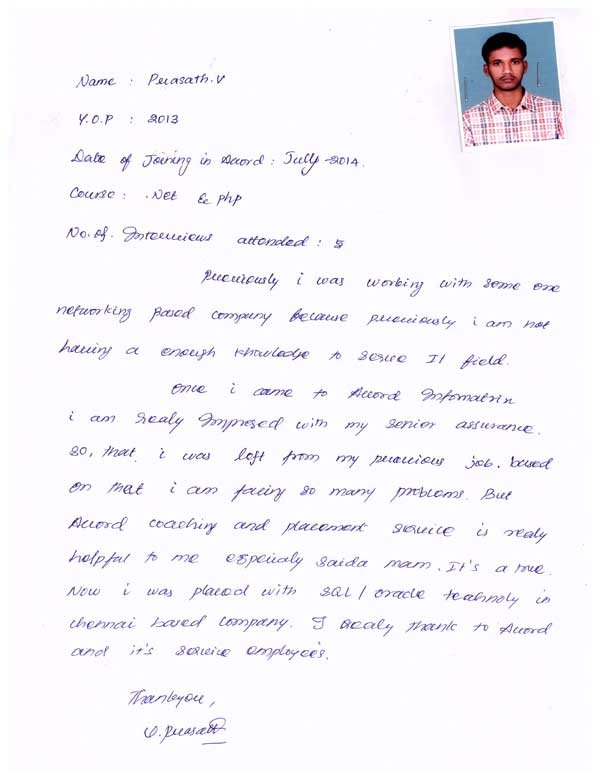 Name : Prasath.V
Y.O.P : 2013
Date of Joining in Accord : July-2014.
Course : .Net & php
No. of. Interviews attonded : 5
Previously i was working with some one
networking Based company Because previously i am not
having a enough knowledge to serve IT field.
Once i came to Accord Infomatrix
i am realy Impresed with my senior assurance.
so, that i was left from my previous job. based
on that i am facing so many problems. But
Accord coaching and placement service is realy
helpful to me especialy saida mam. It's a true.
Now i was placed with SQL / oracle technoly in
chennai based company. I realy thank to Accord
and it's service employees.
Thankyou,
V. Prasath